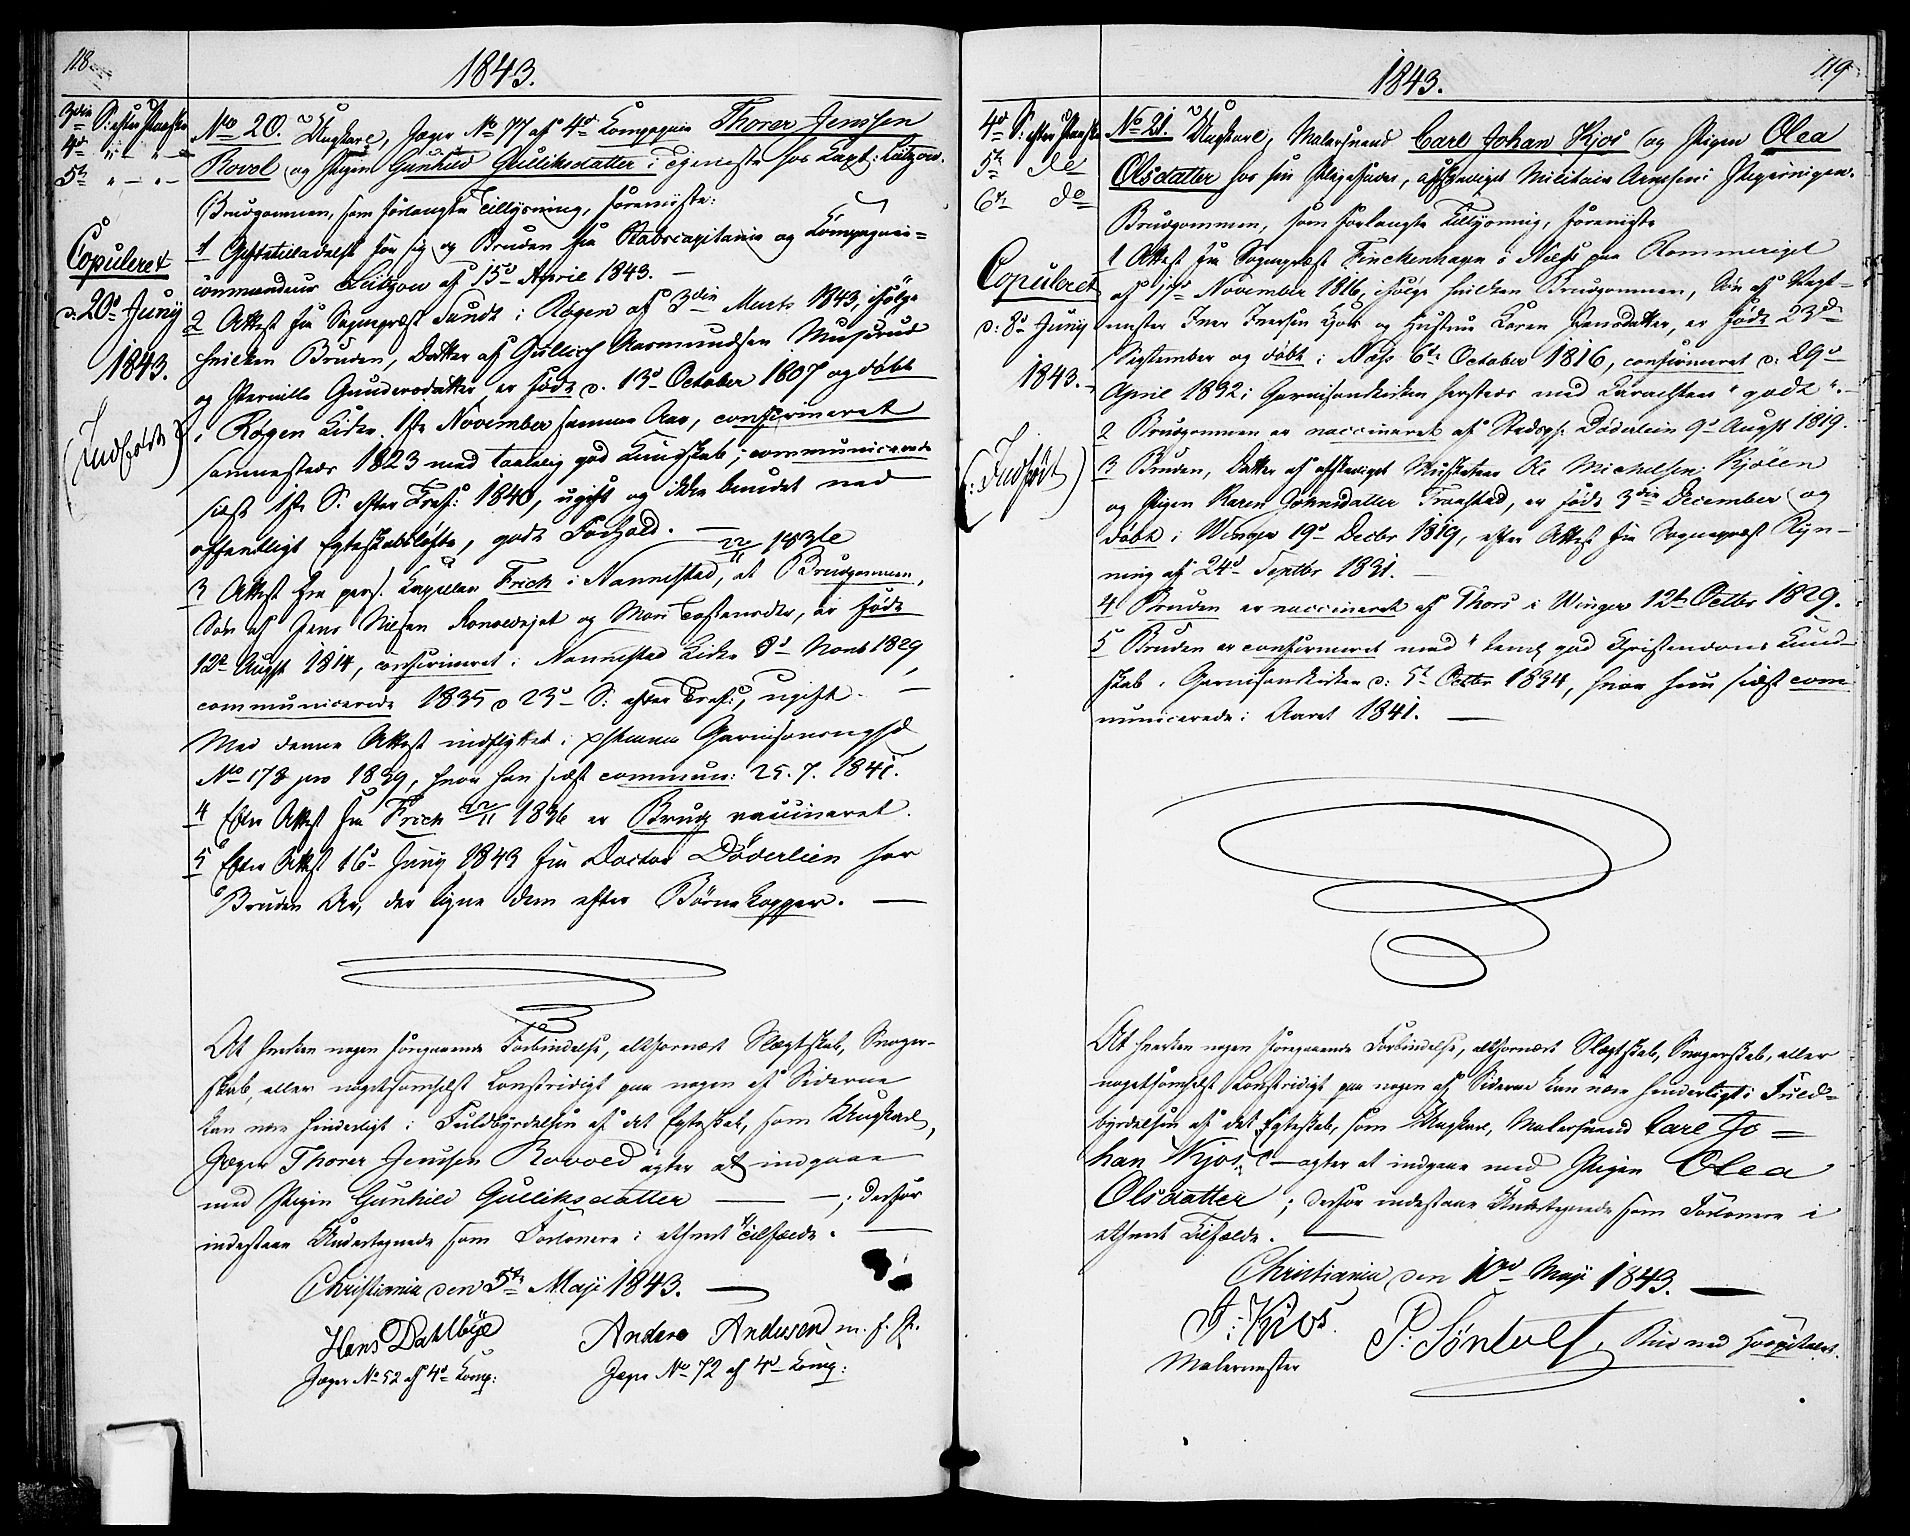 118
1843.
3die S: efter Paaske
4de " — " —
5te " — " —
Copuleret
d. 20de Juny
1843.
(Indført)
No 20. Ungkarl, Jæger No 77 af 4de Kompagnie Thorer Jenssen
Rovol og Pigen Gunhild Gulliksdatter i Tjeneste hos Capt: Lützow.
Brudgommen, som forlangte Tillysning, foreviiste:
1 Giftetilladelse for sig og Bruden fra Stabscapitaine og Kompagnie=
commandeur Lützow af 15de April 1843. —
2 Attest fra Sognepræst Lund i Røgen af 3die Marts 1843, ifølge
hvilken Bruden, Datter af Gullich Aasmundsen Musserud
og Pernille Gundersdatter er født d. 13de October 1807 og døbt
i Røgen Kirke 1ste November samme Aar, confirmeret
sammesteds 1823 med taalelig god Kundskab; communicerede
sidst 1ste S. efter Tref: 1840, ugift og ikke bundet ved
offentligt Egteskabsløfte, godt Forhold. —
3 Attest fra pers. Kapellan Frich i Nannestad, 22/11 1836 at Brudgommen,
Søn af Jens Nilsen Rovoldejet og Mari Tostensdtr, er født
12te Augst 1814, confirmeret i Nannestad Kirke 8de Novb 1829,
communicerede 1835 d 23de S: efter Tref:, ugift. —
Med denne Attest indflyttet i Garnisonsmgh
No 178 pro 1839, hvor han sidst commun: 25. 7. 1841.
4 Efter Attest fra Frich 22/11 1836 er Brudg vaccineret.
5 Efter Attest 16de Juny 1843 fra Doctor Döderlein har
Bruden Ar, der ligne dem efter Børnekopper. —
At hverken nogen foregaaende Forbindelse, altfornært Slægtskab, Svoger-
skab, eller nogetsomhelst Lovstridigt paa nogen af Siderne
kan være hinderligt i Fuldbyrdelsen af det Egteskab, som Ungkarl,
Jæger Thorer Jenssen Rovold agter at indgaae
med Pigen Gunhild Gulliksdatter — —; derfor
indestaae Undertegnede som Forlovere i ethvert Tilfælde. —
Christiania den 5te Maji 1843. —
Hans Dahlbye
Jæger No 52 af 4de Komp:
Anders Andersen m. f. P.
Jæger No 72 af 4de Komp:
119
1843.
4de S: efter Paaske
5te do
6te do
Copuleret
d. 8de Juny
1843.
(: Indført)
No 21. Ungkarl, Malersvend Carl Johan Kjos og Pigen Olea
Olsdatter hos sin Plejefader, afskediget Militair Arnesen i Pipervigen.
Brudgommen, som forlangte Tillysning, foreviste
1 Attest fra Sognepræst Finckenhagen i Næs paa Rommeriget
af 17de November 1816, ifølge hvilken Brudgommen, Søn af Vagt-
mester Iver Iversen Kjos og Hustru Karen Hansdatter, er født 23de
September og døbt i Næs 6te October 1816, confirmeret d. 29de
April 1832 i Garnisonskirken hersteds med Karacteren "godt".
2 Brudgommen er vaccineret af Stadsph. Döderlein 9de Augst 1819.
3 Bruden, Datter af afskediget Musketeer Ole Michelsen Kjölen
og Pigen Karen Johnsdatter Traastad, er født 3die December og
døbt i Winger 19de Decbr 1819, efter Attest fra Sognepræst Ryn-
ning af 24de Septbr 1831. —
4 Bruden er vaccineret af Thors i Winger 12te Octbr 1829.
5 Bruden er confirmeret med "temml. god Christendoms Kund-
skab i Garnisonskirken d. 5te Octbr 1834, hvor hun sidst com
municerede i Aaret 1841. —
At hverken nogen foregaaende Forbindelse, altfornært Slægtskab, Svogerskab, eller
nogetsomhelst Lovstridigt paa nogen af Siderne kan være hinderligt i Fuld=
byrdelsen af det Egteskab, som Ungkarl, Malersvend Carl Jo=
han Kjos — agter at indgaae med Pigen Olea
Olsdatter; derfor indestaae Undertegnede som Forlovere i
ethvert Tilfælde. —
Christiania den 10de Maji 1843. —
I: Kios.
Malermester
P: Söntvelt, Bud ved Hospitalet.